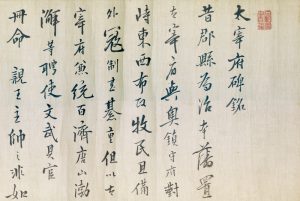 太宰府碑銘
昔郡縣爲治本藩置
太宰府與奥鎮守府對
峙東西布政牧民且備
外寇制綦重但以太
宰府兼統百濟唐山渤
澥等聘使文武具官
冊命 親王主帥之非如